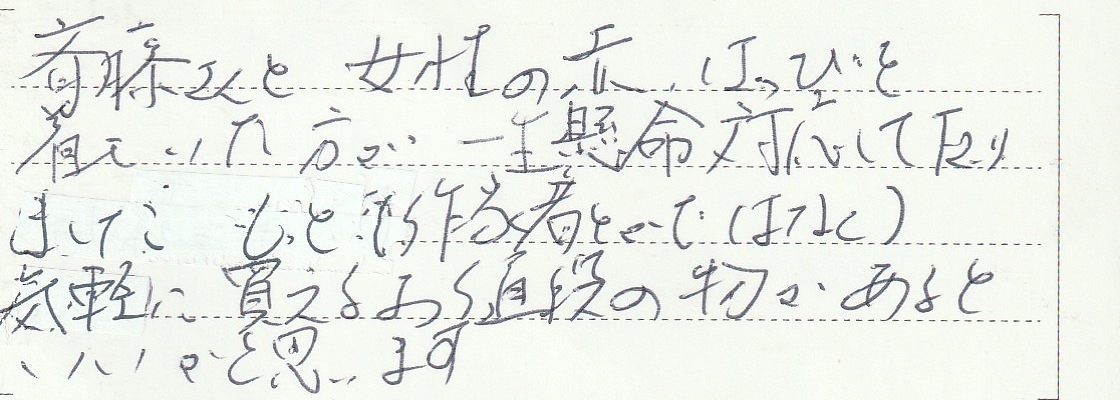 斉藤さんと 女性の赤いはっぴを
着ていた方が 一生懸命対応して下さり
ました もっと(作家者とかではなく)
気軽に買えるお値段の物が あると
いいかと思います